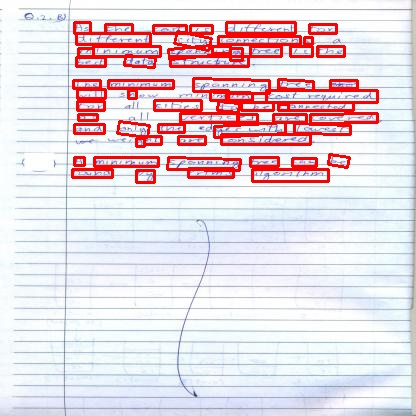 Q.2. B)
As the cost is different for
different city connection, a
minimum spanning tree is the
best data structure.
The minimum spanning tree
will show minimum cost required
for all cities to be connected
all vertices are covered
and only the edges with lowest
weight are considered
A minimum spanning tree can be
found by Prims algorithm